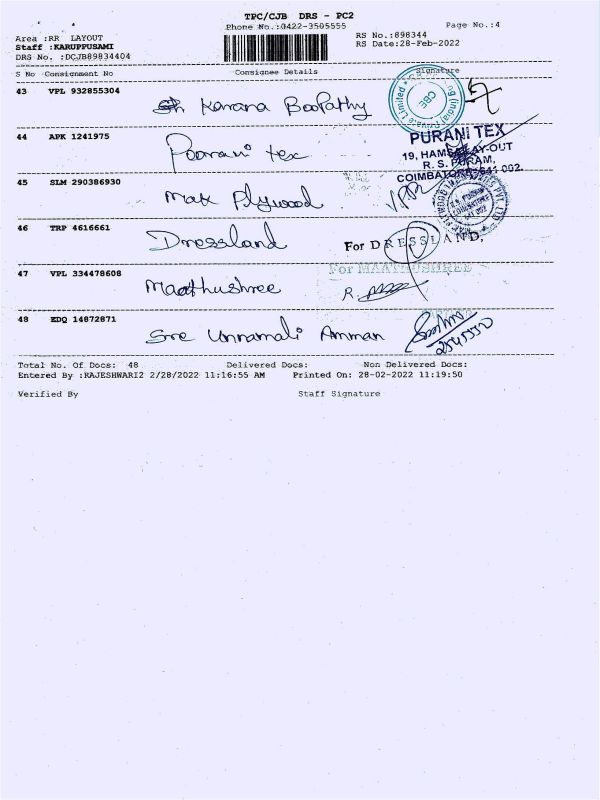 TPC/CJB DRS - PC2
Phone No.:0422-3505555
Page No.:4
Area :RR LAYOUT
RS No.:898344
Staff :KARUPPUSAMI
RS Date:28-Feb-2022
DRS No. :DCJB89834404
S No Consignment No Consignee Details Signature
43 VPL 932855304 Kanana Boopathy
CBE
(India) Private Limited
44 APK 1241975 Poorani tex
PURANI TEX
19, HAMSA LAY-OUT
R. S. PURAM,
COIMBATORE-641 002.
45 SLM 290386930 Max Plywood
46 TRP 4616661 Dressland
For DRESSLAND,
47 VPL 334478608 Maathushree
For MAATHUSHREE
48 EDQ 14872871 Sree Unnamali Amman
Total No. Of Docs: 48 Delivered Docs: Non Delivered Docs:
Entered By :RAJESHWARI2 2/28/2022 11:16:55 AM Printed On: 28-02-2022 11:19:50
Verified By Staff Signature